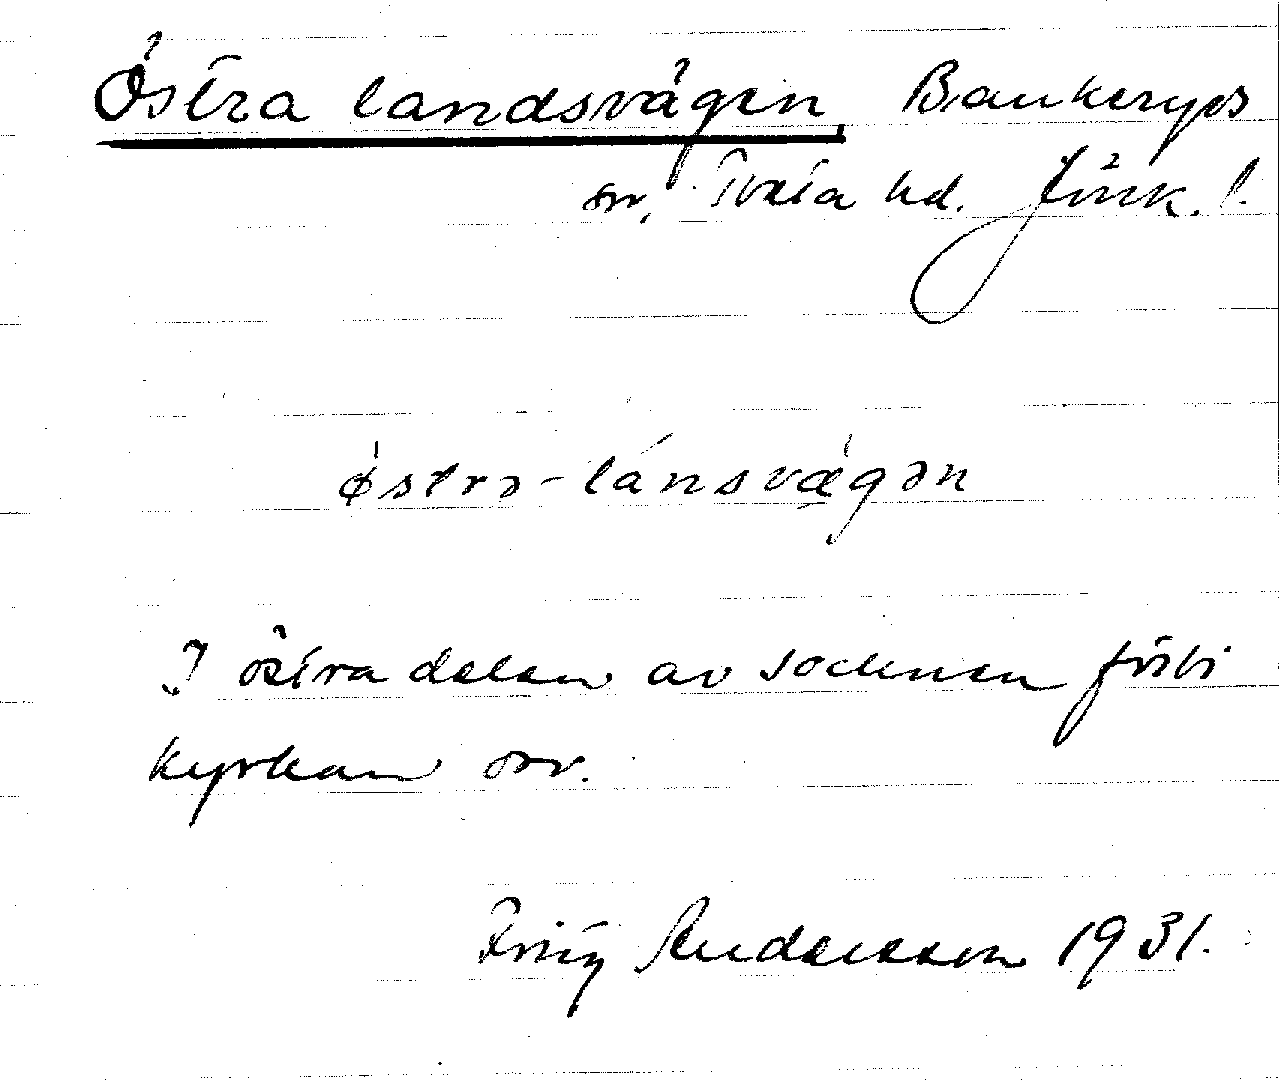 Östra landsvägen, Bankeryds
sn, Tveta hd. Jönk. l.
østrə-lánsvægən
I östra delen av socknen förbi
kyrkan osv.
Fritz Andersson 1931.